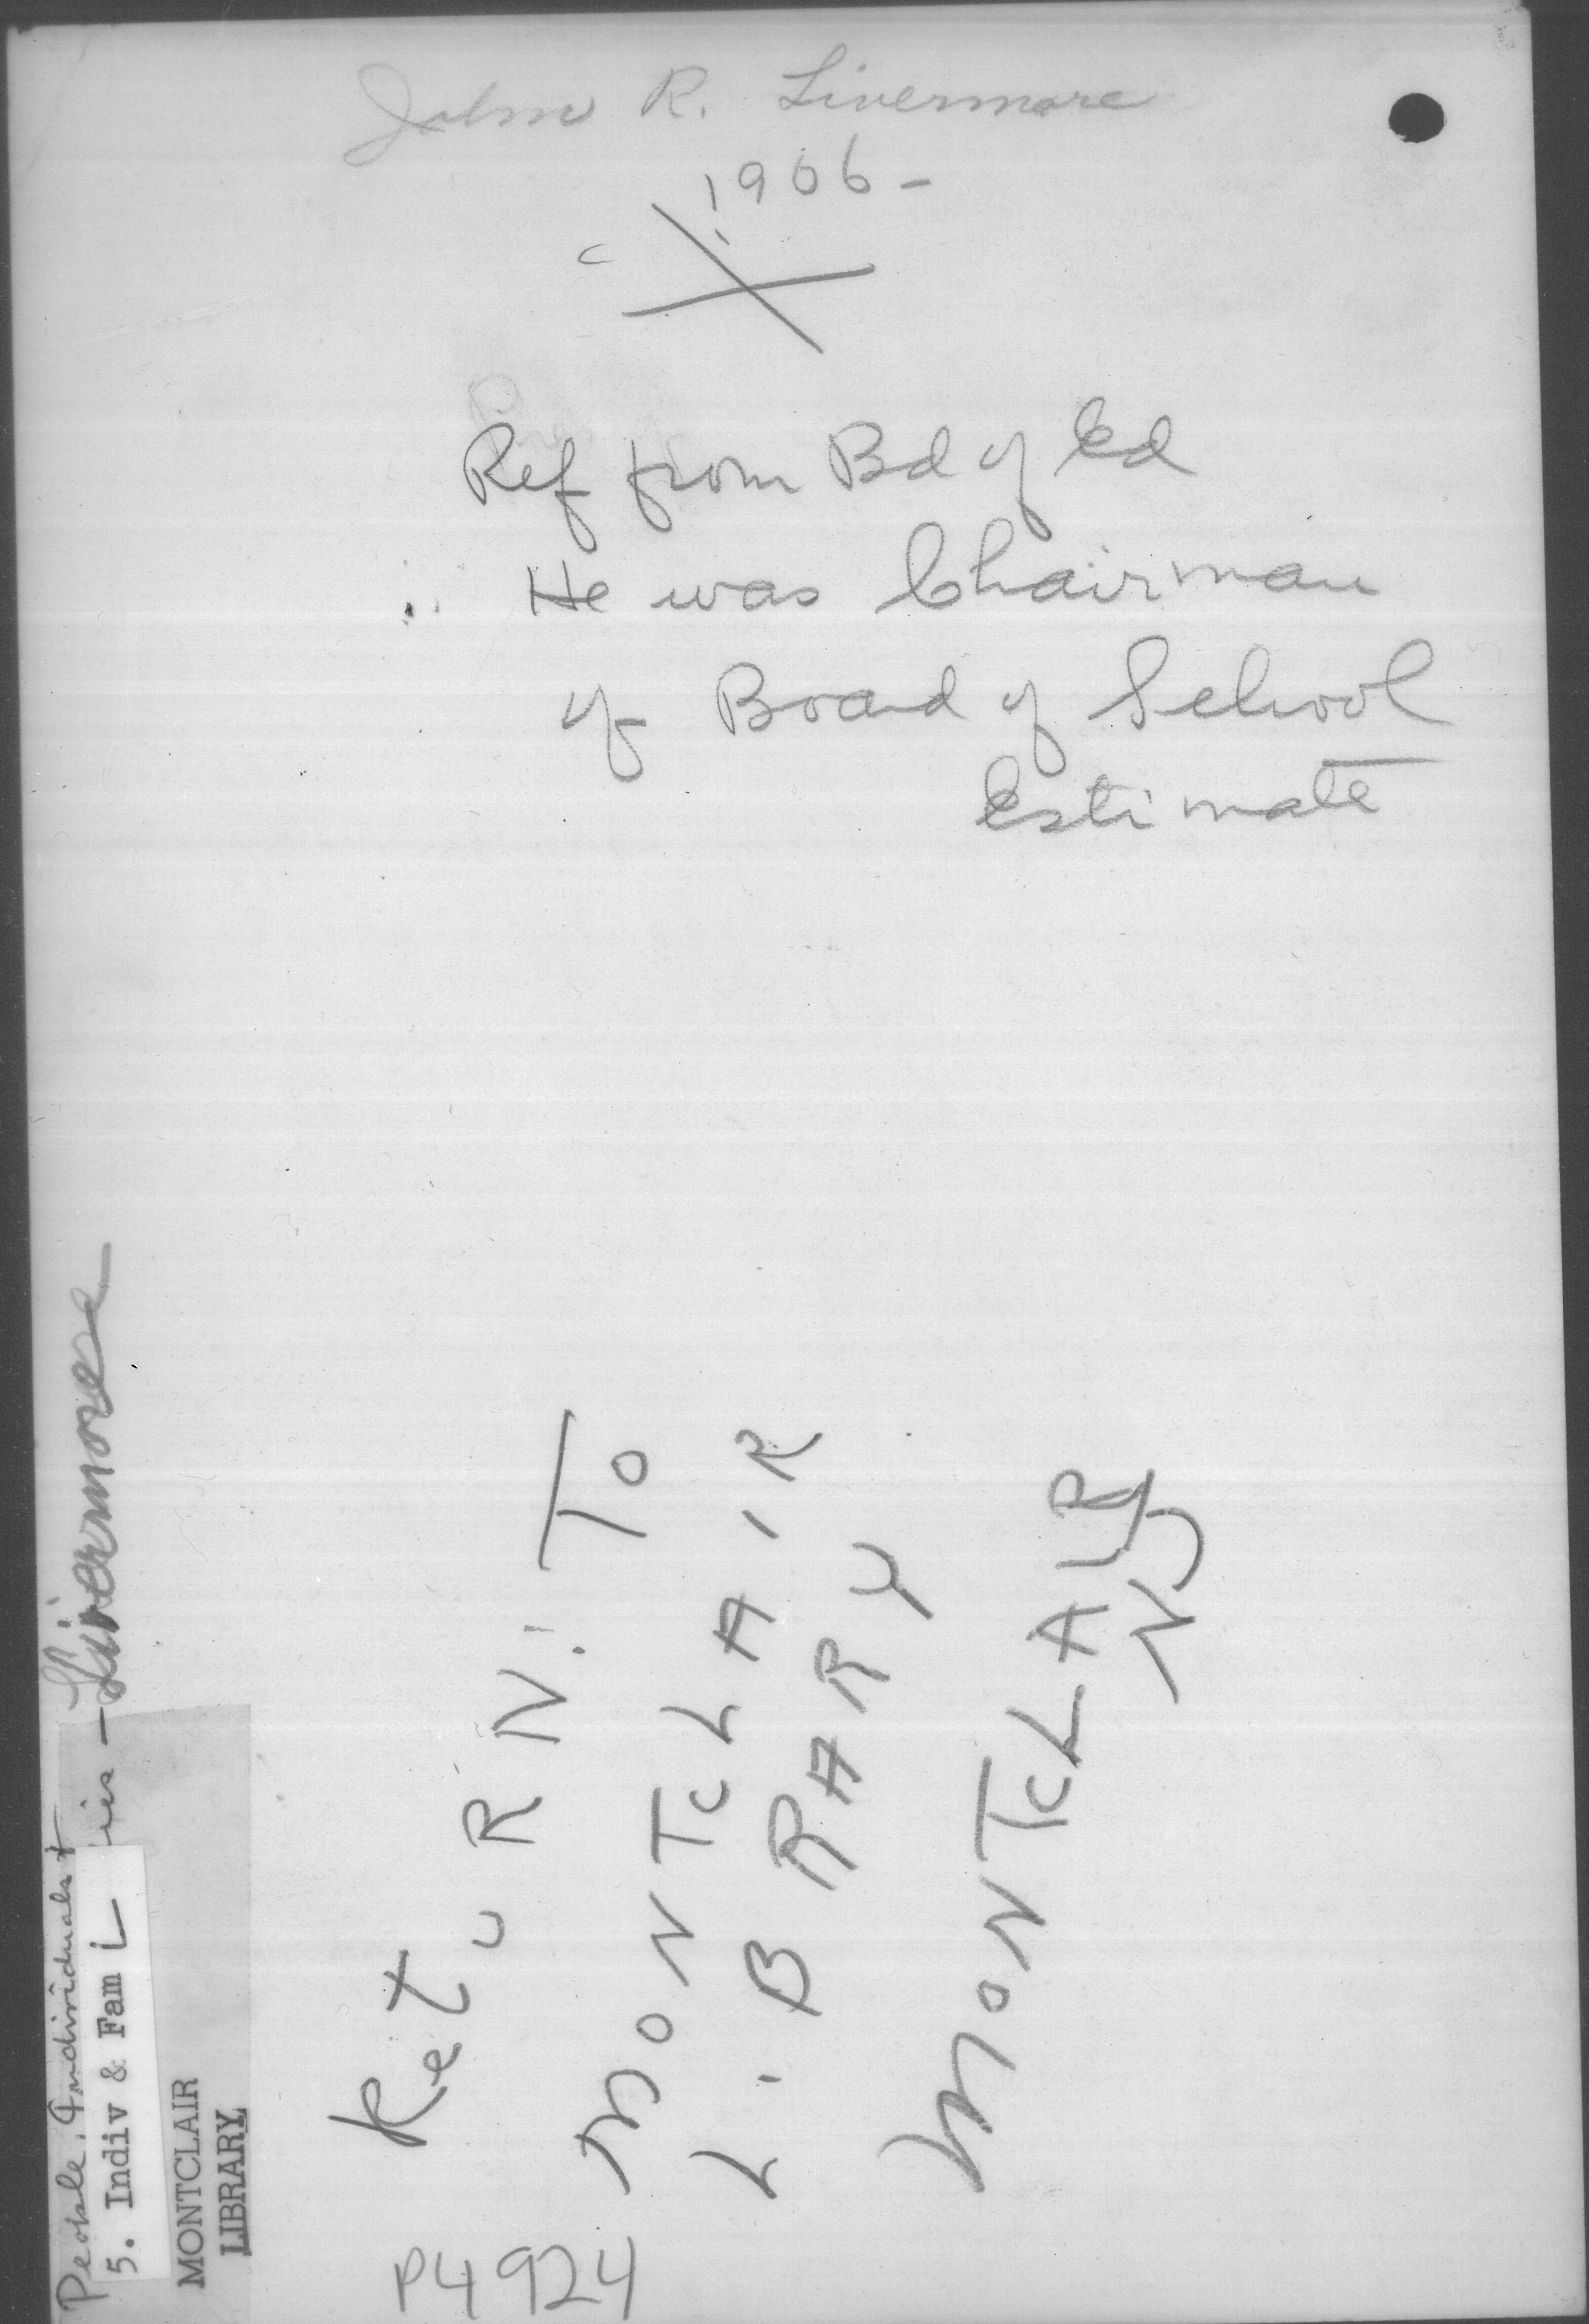 John R. Livermore
1906-
Ref from Bd of Ed
He was Chairman
of Board of School
Estimate
RetURN: To
MONTCLAIR
LIBRARY
MONTCLAIR
NJ
P4924
People, Individuals +
ies - Livermore
5. Indiv & Fam L
MONTCLAIR
LIBRARY